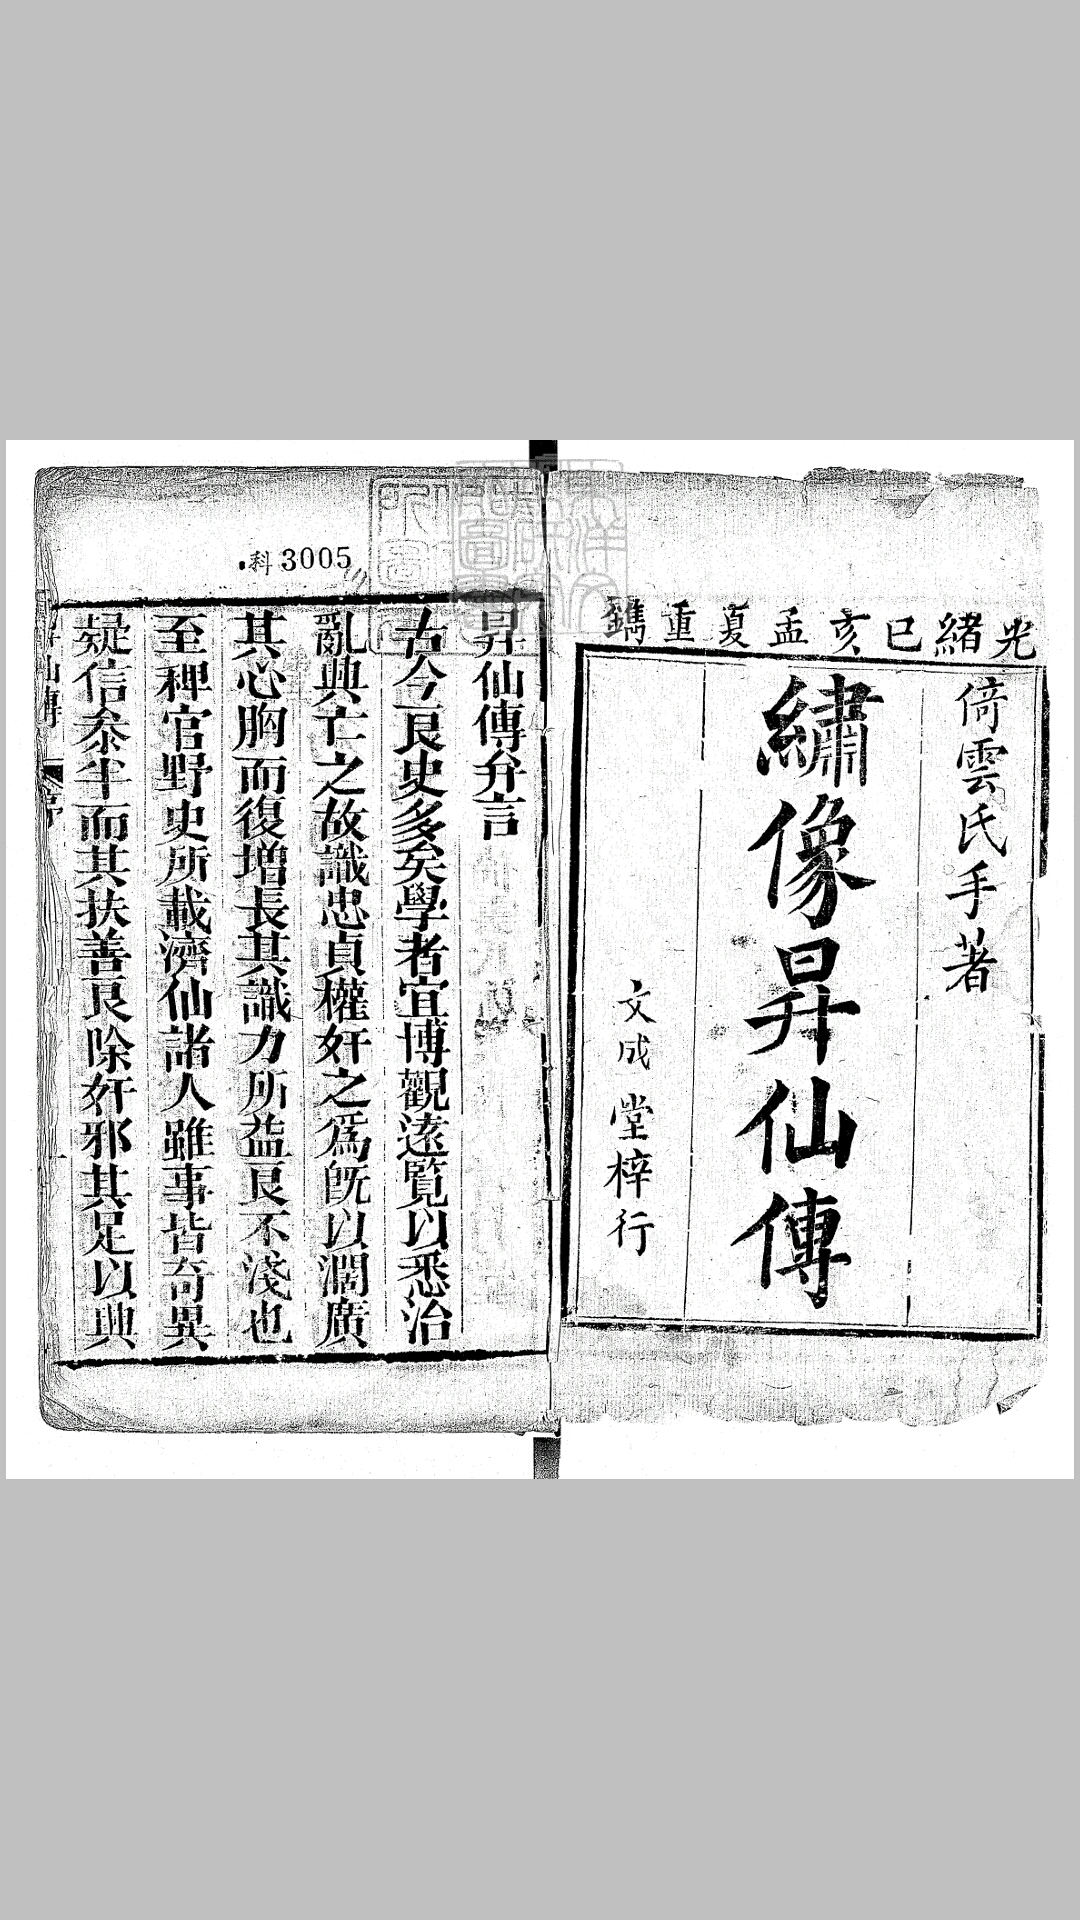 光緒己亥孟夏重鐫
倚雲氏手著
繡像昇仙傳
文成堂梓行
科3005
昇仙傳弁言
古今良史多矣學者宜博觀遠覽以悉治
亂興亡之故識忠貞權奸之爲旣以濶廣
其心胸而復增長其識力所益良不淺也
至稗官野史所載濟仙諸人雖事皆奇異
疑信叅半而其扶善良除奸邪其足以興